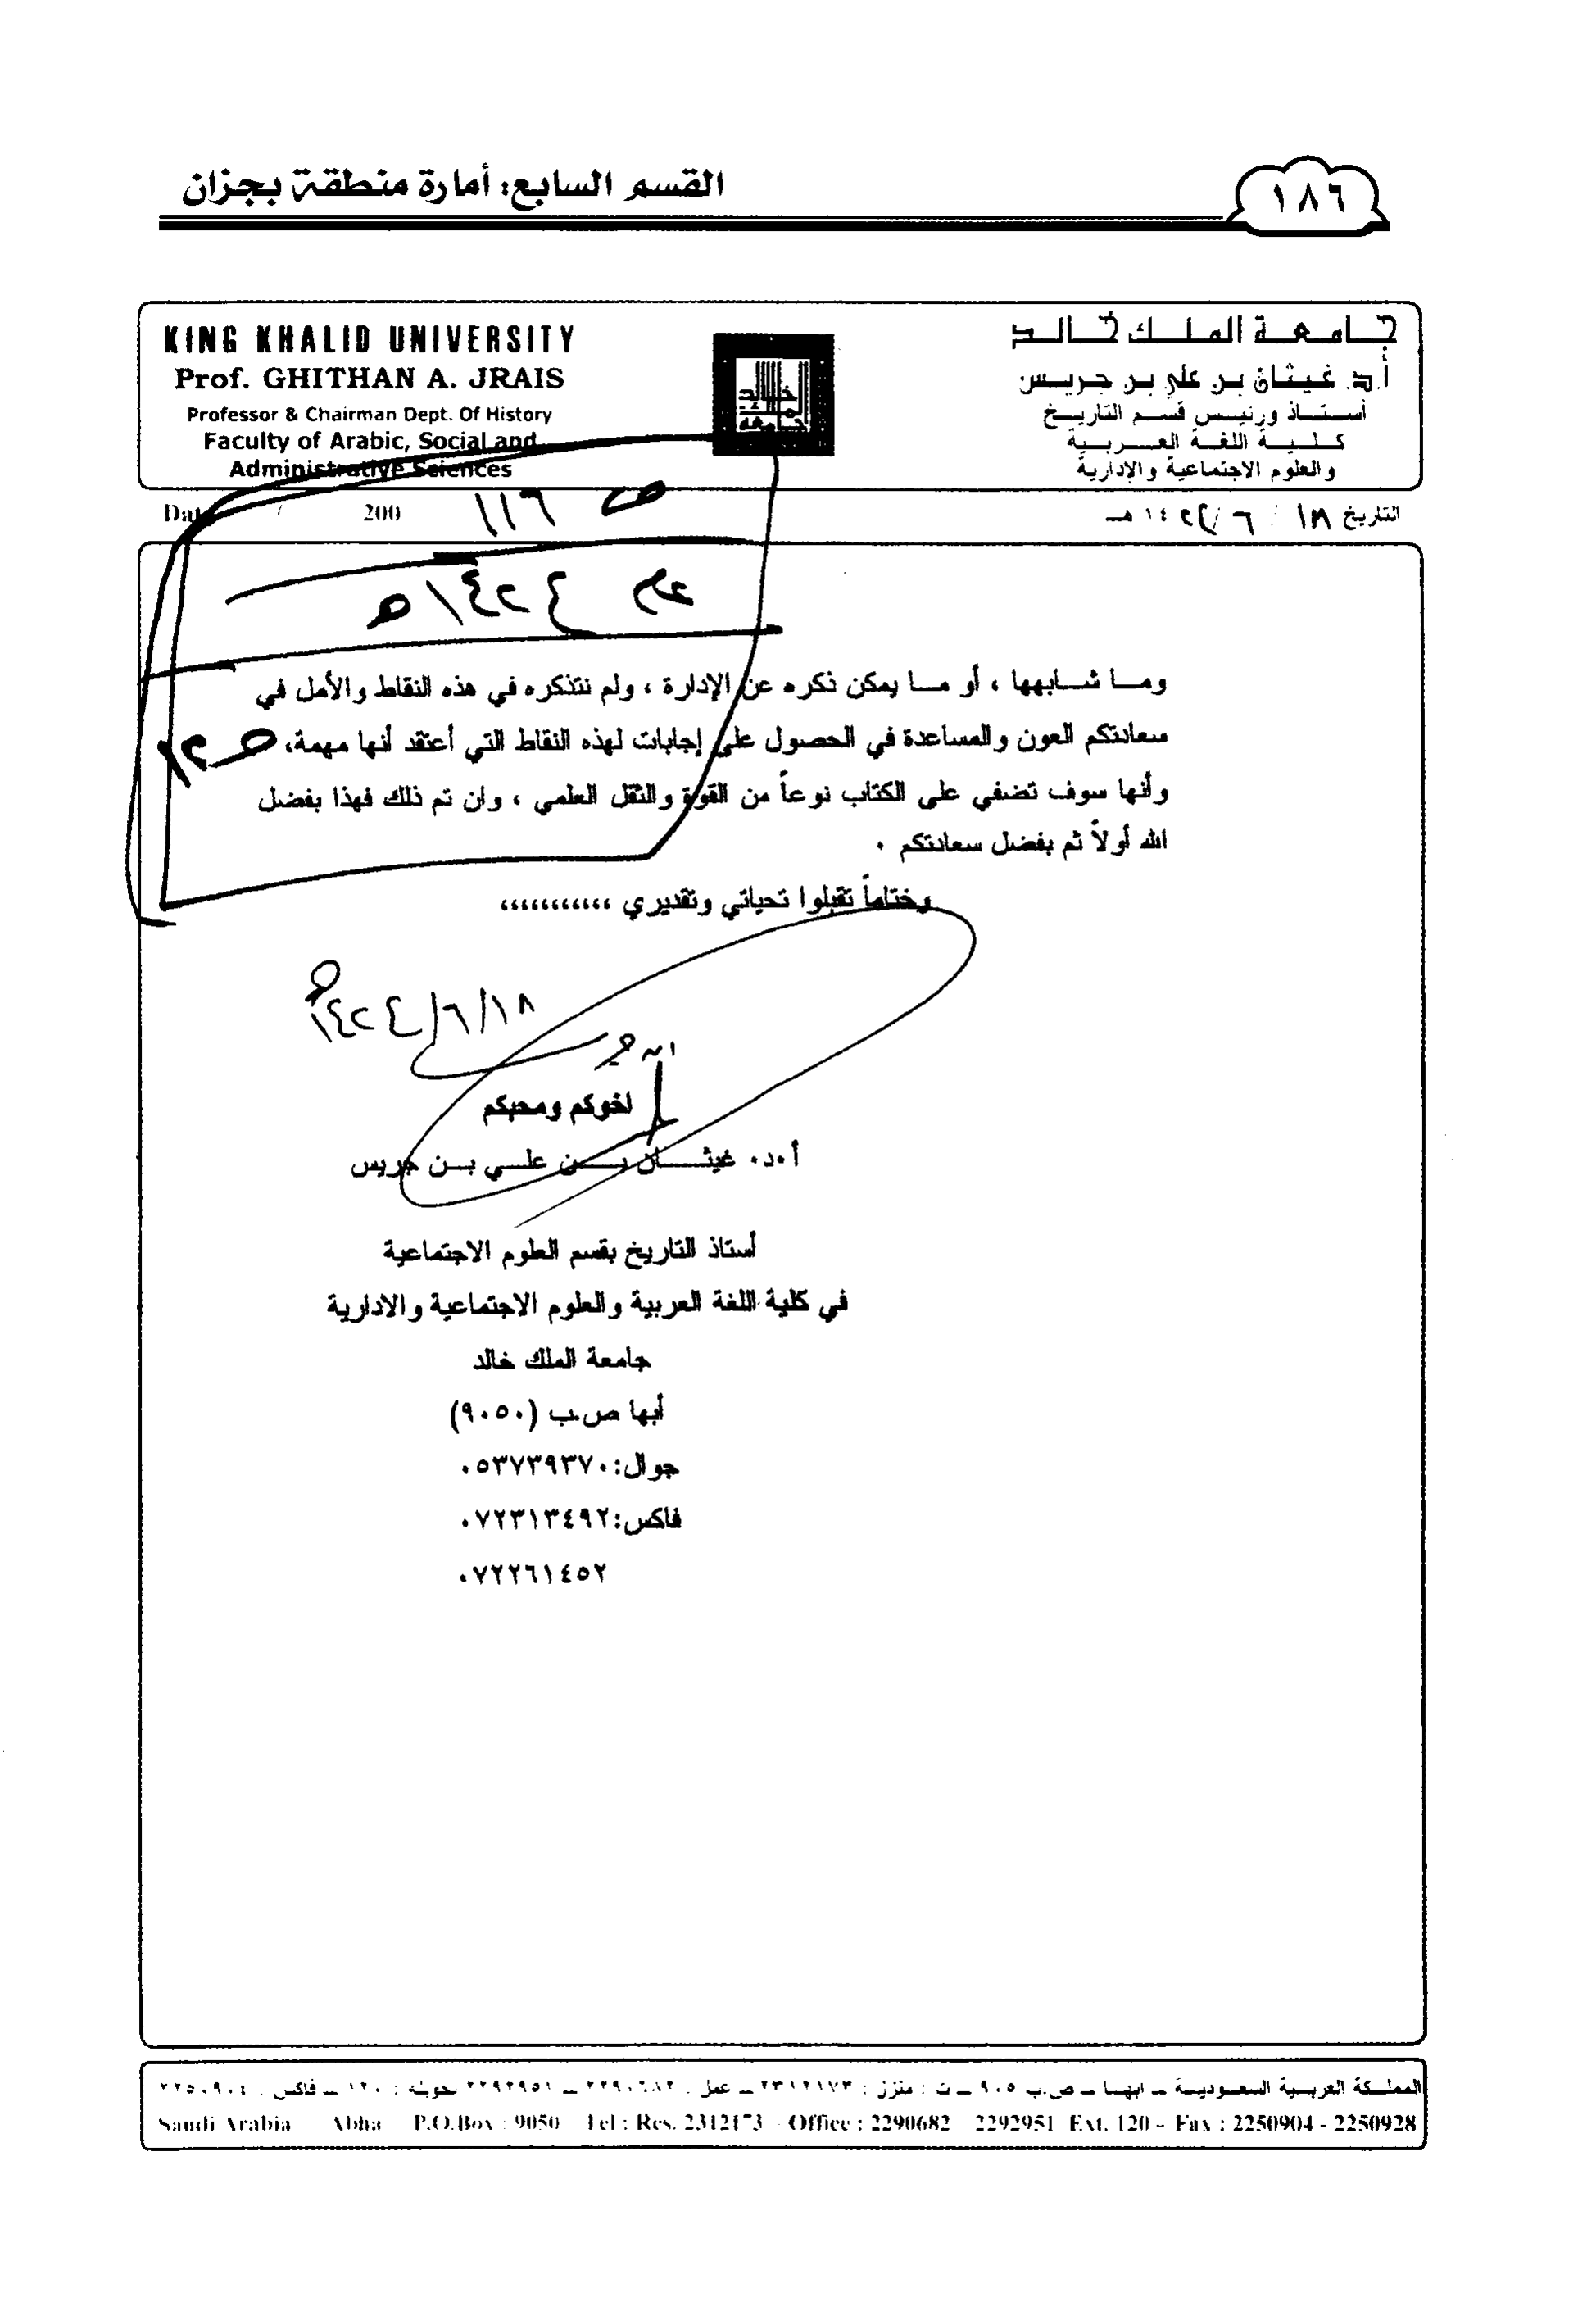 القسم السابع: أمارة منطقة بجزان
١٨٦
KING KHALID UNIVERSITY
Prof. GHITHAN A. JRAIS
Professor & Chairman Dept. Of History
Faculty of Arabic, Social and
Administrative Sciences
جامعة الملك خالد
أ.د. غيثان بن علي بن جريس
أستاذ ورئيس قسم التاريخ
كلية اللغة العربية
والعلوم الاجتماعية والإدارية
جامعة الملك خالد
200
ص ١١٦
التاريخ ١٨ / ٦ / ١٤٢٤هـ
عام ١٤٢٤هـ
وما شابهها ، أو ما يمكن ذكره عن الإدارة ، ولم نتذكره في هذه النقاط والأمل في
سعادتكم العون والمساعدة في الحصول على إجابات لهذه النقاط التي أعتقد أنها مهمة،
وأنها سوف تضفي على الكتاب نوعاً من القوة والثقل العلمي ، وان تم ذلك فهذا بفضل
الله أولاً ثم بفضل سعادتكم ٠
وختاماً تقبلوا تحياتي وتقديري ،،،،،،،،،،،
١٨/٦/١٤٢٤هـ
اخوكم ومحبكم
أ٠د٠ غيثان بن علي بن جريس
أستاذ التاريخ بقسم العلوم الاجتماعية
في كلية اللغة العربية والعلوم الاجتماعية والادارية
جامعة الملك خالد
أبها ص.ب (٩٠٥٠)
جوال: ٠٥٣٧٣٩٣٧٠
فاكس: ٠٧٢٣١٣٤٩٢
٠٧٢٢٦١٤٥٢
المملكة العربية السعودية – ابها – ص.ب ٩٠٥ – ت : منزل : ٢٣١٢١٧٣ – عمل : ٢٢٩٠٦٨٢ – ٢٢٩٢٩٥١ تحويلة : ١٢٠ – فاكس : ٢٢٥٠٩٠٤
Saudi Arabia Abha P.O.Box : 9050 Tel : Res. 2312173 - Office : 2290682 2292951 Ext. 120 - Fax : 2250904 - 2250928